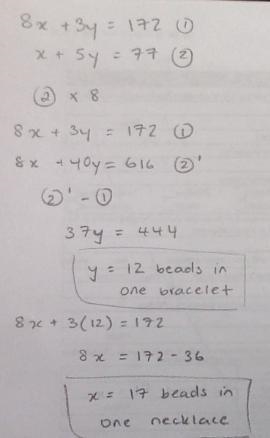 8x + 3y = 172 ①
x + 5y = 77 ②
② × 8
8x + 3y = 172 ①
8x + 40y = 616 ②'
②' - ①
37y = 444
y = 12 beads in
one bracelet
8x + 3(12) = 172
8x = 172 - 36
x = 17 beads in
one necklace